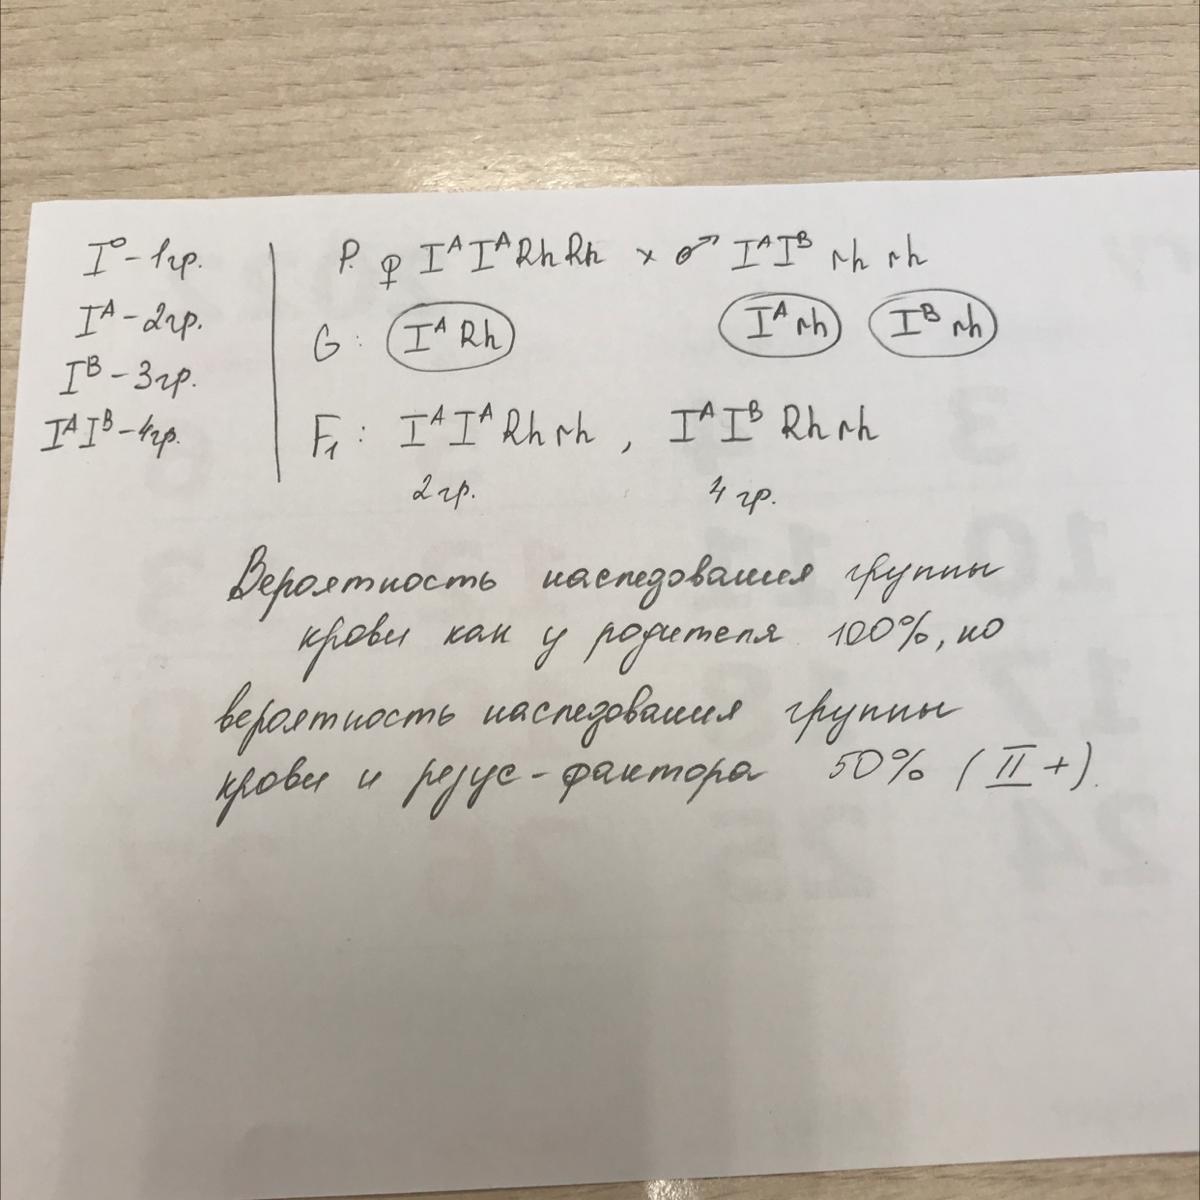 I⁰ - 1гр.
Iᴬ - 2гр.
Iᴮ - 3гр.
IᴬIᴮ - 4гр.
P. ♀ IᴬIᴬRhRh × ♂ IᴬIᴮ rh rh
G: Iᴬ Rh Iᴬ rh Iᴮ rh
F₁: IᴬIᴬ Rh rh , IᴬIᴮ Rh rh
2 гр. 4 гр.
Вероятность наследования группы
крови как у родителя 100%, но
вероятность наследования группы
крови и резус-фактора 50% (II+).